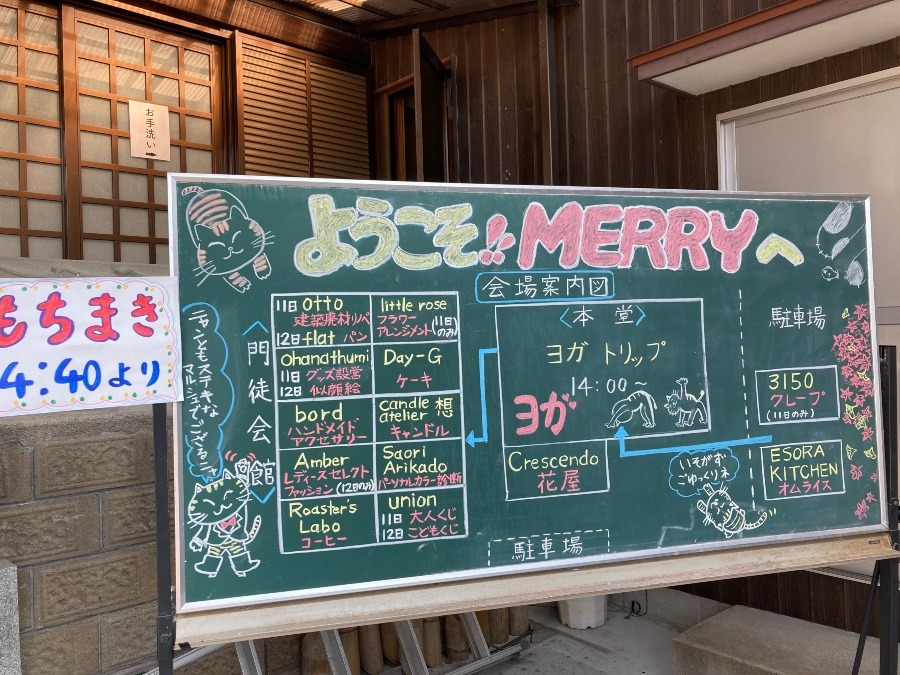 お手洗い→
もちまき
4:40より
ようこそ!! MERRYへ
会場案内図
ニャンともステキな
マルシェでございるニャ
門徒会館
11日 otto
建築廃材リバ
12日 flat パン
little rose
フラワー
アレンジメント(11日のみ)
ohanathumi
11日 グッズ設営
12日 似顔絵
Day-G
ケーキ
bord
ハンドメイド
アクセサリー
candle
atelier 想
キャンドル
Amber
レディースセレクト
ファッション(12日のみ)
Saori
Arikado
パーソナルカラー診断
Roaster's
Labo
コーヒー
union
11日 大人くじ
12日 こどもくじ
〈本堂〉
ヨガ トリップ
14:00~
ヨガ
Crescendo
花屋
駐車場
駐車場
3150
クレープ
(11日のみ)
ESORA
KITCHEN
オムライス
いそがず
ごゆっくりネ